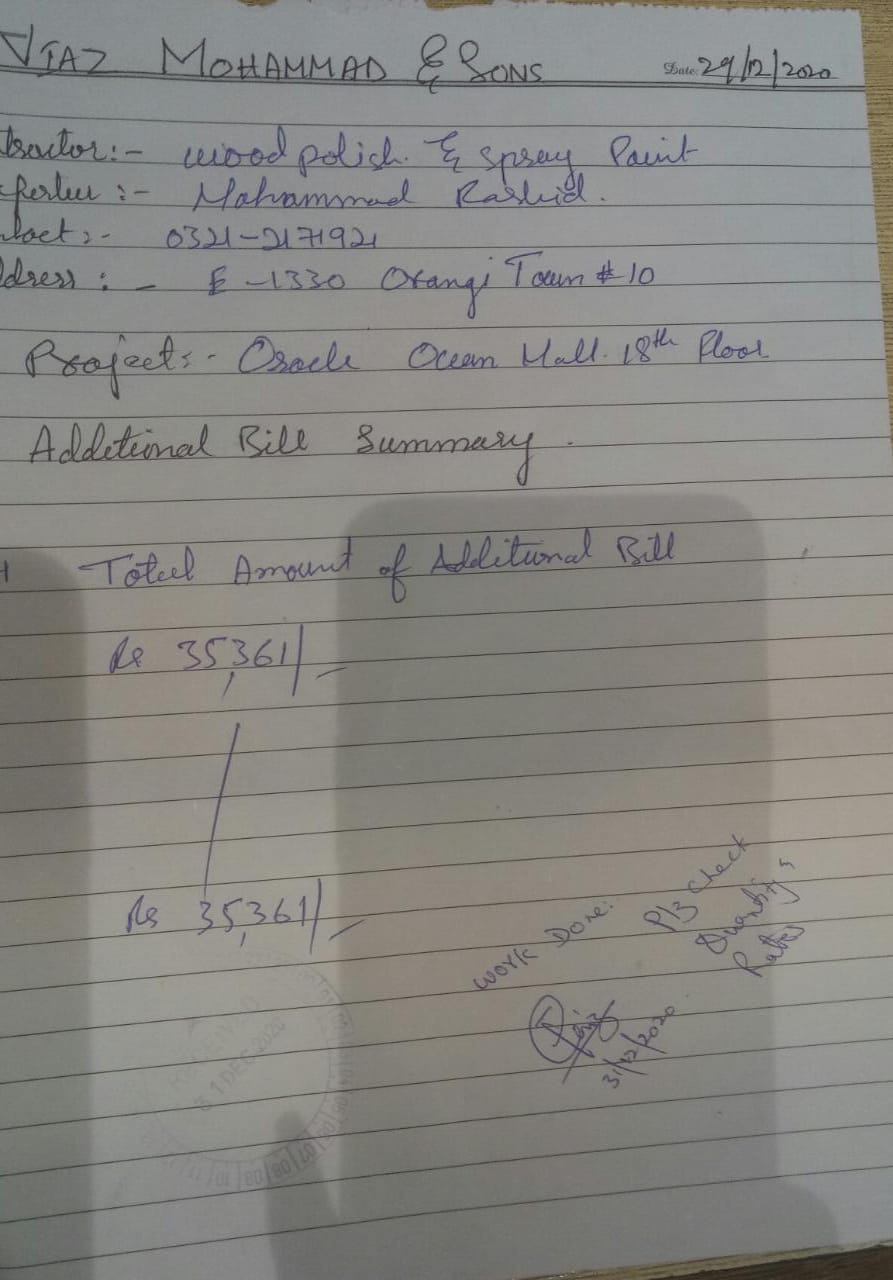 VJAZ MOHAMMAD & SONS
Date: 29/12/2020
tractor:- wood polish. & Spray Paint
:- Mohammad Rashid.
ntact:- 0321-2171921
ddress:- E-1330 Orangi Town # 10
Project:- Oracle Ocean Mall. 18th Floor
Additional Bill Summary.
Total Amount of Additional Bill
Rs 35,361/-
Rs 35,361/-
Work Done.
Plz Check
Quantity &
Rates
31/12/2020
RECEIVED
31 DEC 2020